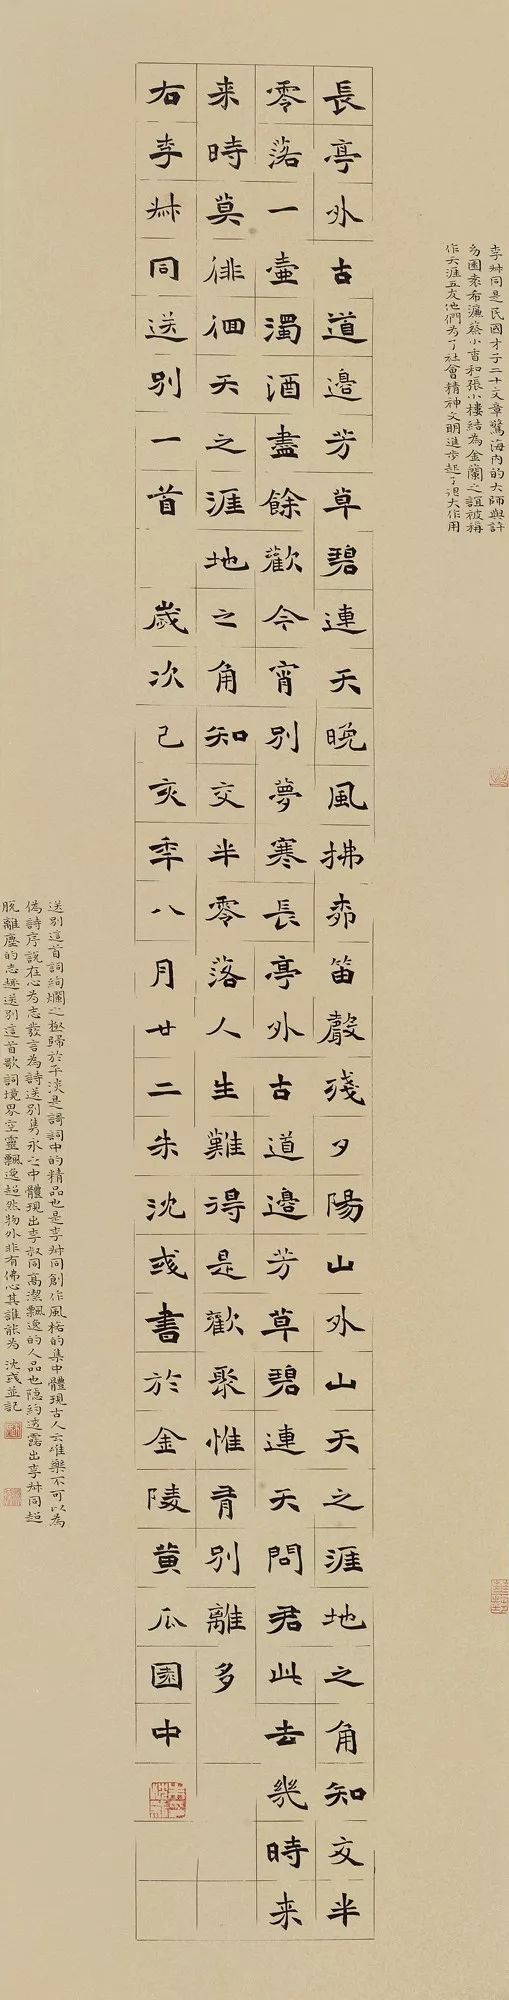 李叔同是民國才子二十文章驚海内的大師與許
幻園袁希濂蔡小香和張小樓結為金蘭之誼被稱
作天涯五友他們為了社會精神文明進步起了很大作用
長亭外古道邊芳草碧連天晚風拂柳笛聲殘夕陽山外山天之涯地之角知交半
零落一壺濁酒盡餘歡今宵別夢寒長亭外古道邊芳草碧連天問君此去幾時来
来時莫徘徊天之涯地之角知交半零落人生難得是歡聚惟有別離多
右李叔同送別一首 歲次己亥年八月廿二朱沈彧書於金陵黄瓜園中
送別這首詞絢爛之極歸於平淡是詩詞中的精品也是李叔同創作風格的集中體現古人云唯樂不可以為
偽詩序說在心為志發言為詩送別雋永之中體現出李叔同高潔飄逸的人品也隐約透露出李叔同超
脱離塵的志趣送別這首歌詞境界空靈飄逸超然物外非有佛心其誰能為 沈彧並記